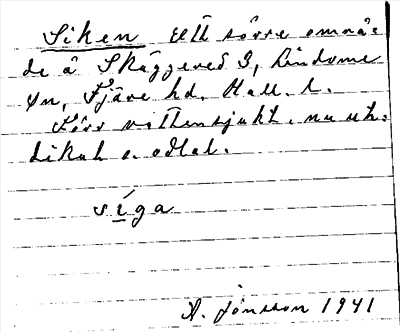 Siken Ett större områ=
de å Skäggered 3, Lindome
sn, Fjäre hd. Hall. l.
Förr vattensjukt, nu ut=
dikat o. odlat.
síga
A. Jonsson 1941